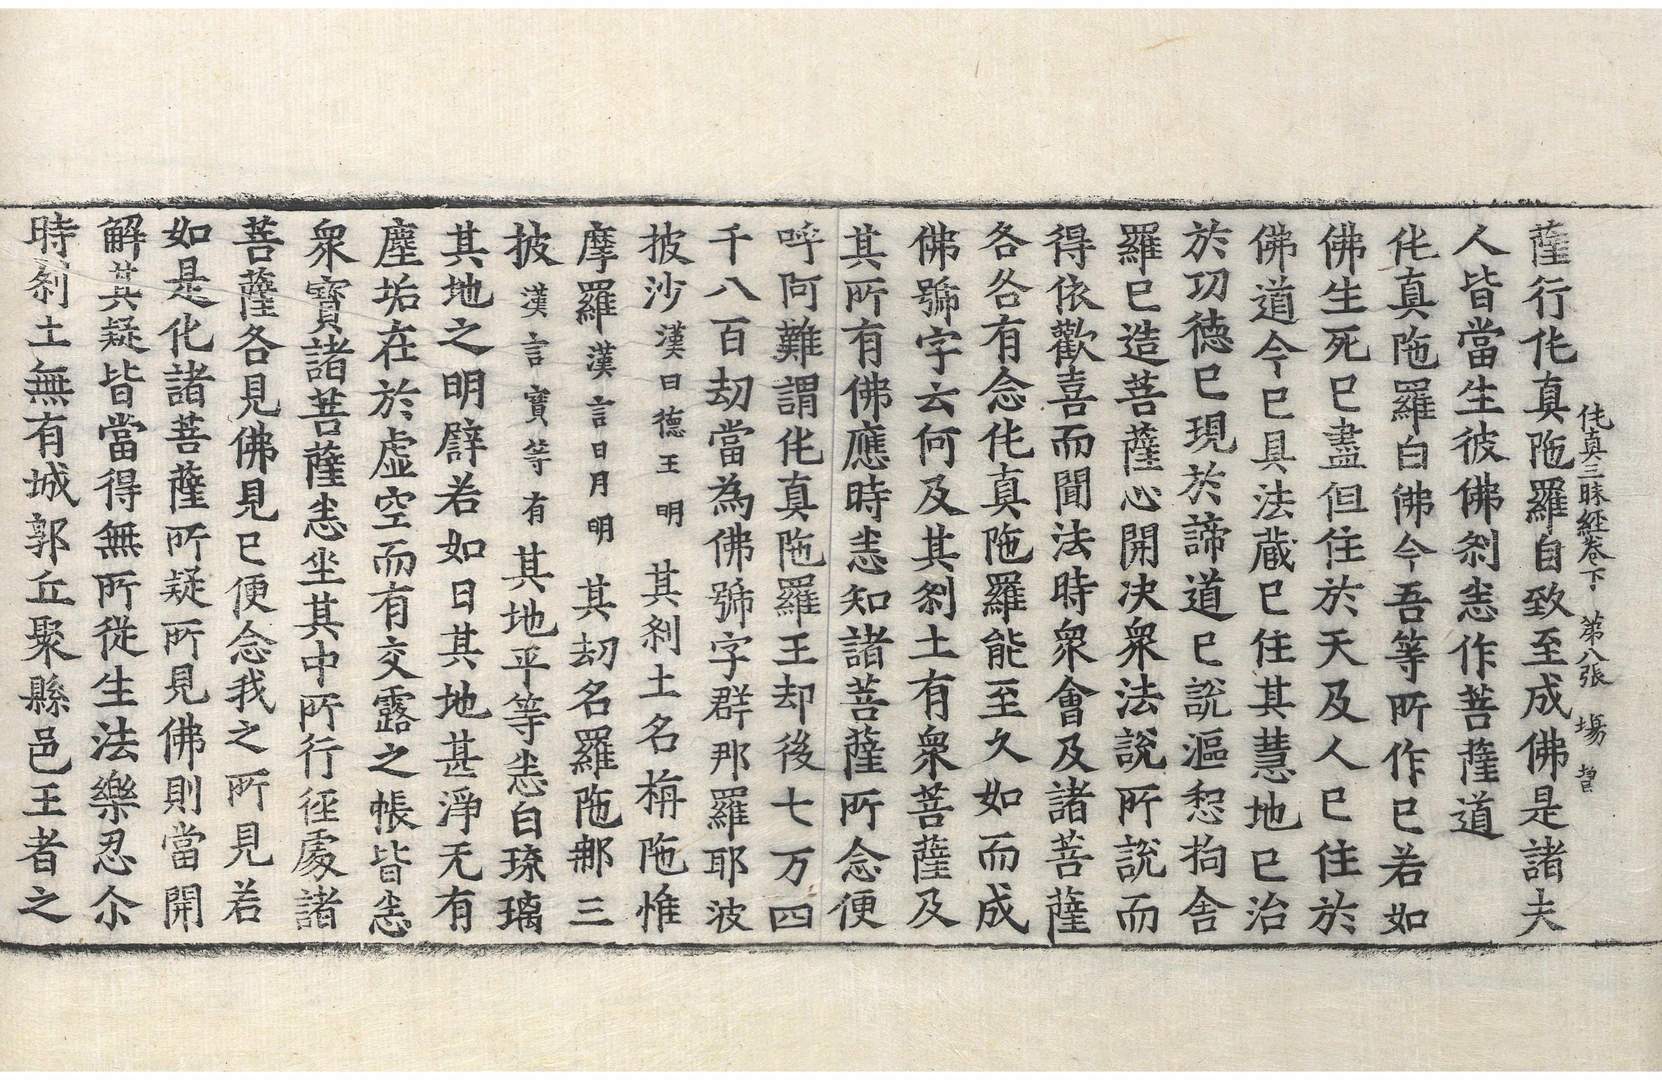 伅真三昧經卷下　第八張　場
薩行伅真陁羅自致至成佛是諸夫
人皆當生彼佛剎悉作菩薩道
伅真陁羅白佛今吾等所作已若如
佛生死已盡但住於天及人已住於
佛道今已具法藏已住其慧地已治
於功德已現於諦道已說漚惒拘舍
羅已造菩薩心開決衆法說所說而
得依歡喜而聞法時衆會及諸菩薩
各各有念伅真陁羅能至久如而成
佛號字云何及其剎土有衆菩薩及
其所有佛應時悉知諸菩薩所念便
呼阿難謂伅真陁羅王却後七万四
千八百劫當為佛號字群那羅耶波
披沙漢曰德王明　其剎土名栴陁惟
摩羅漢言日月明　其劫名羅陁䣍三
披漢言寶等有　其地平等悉白琉璃
其地之明譬若如日其地甚淨无有
塵垢在於虛空而有交露之帳皆悉
衆寶諸菩薩悉坐其中所行徑處諸
菩薩各見佛見已便念我之所見若
如是化諸菩薩所疑所見佛則當開
解其疑皆當得無所從生法樂忍尒
時剎土無有城郭丘聚縣邑王者之